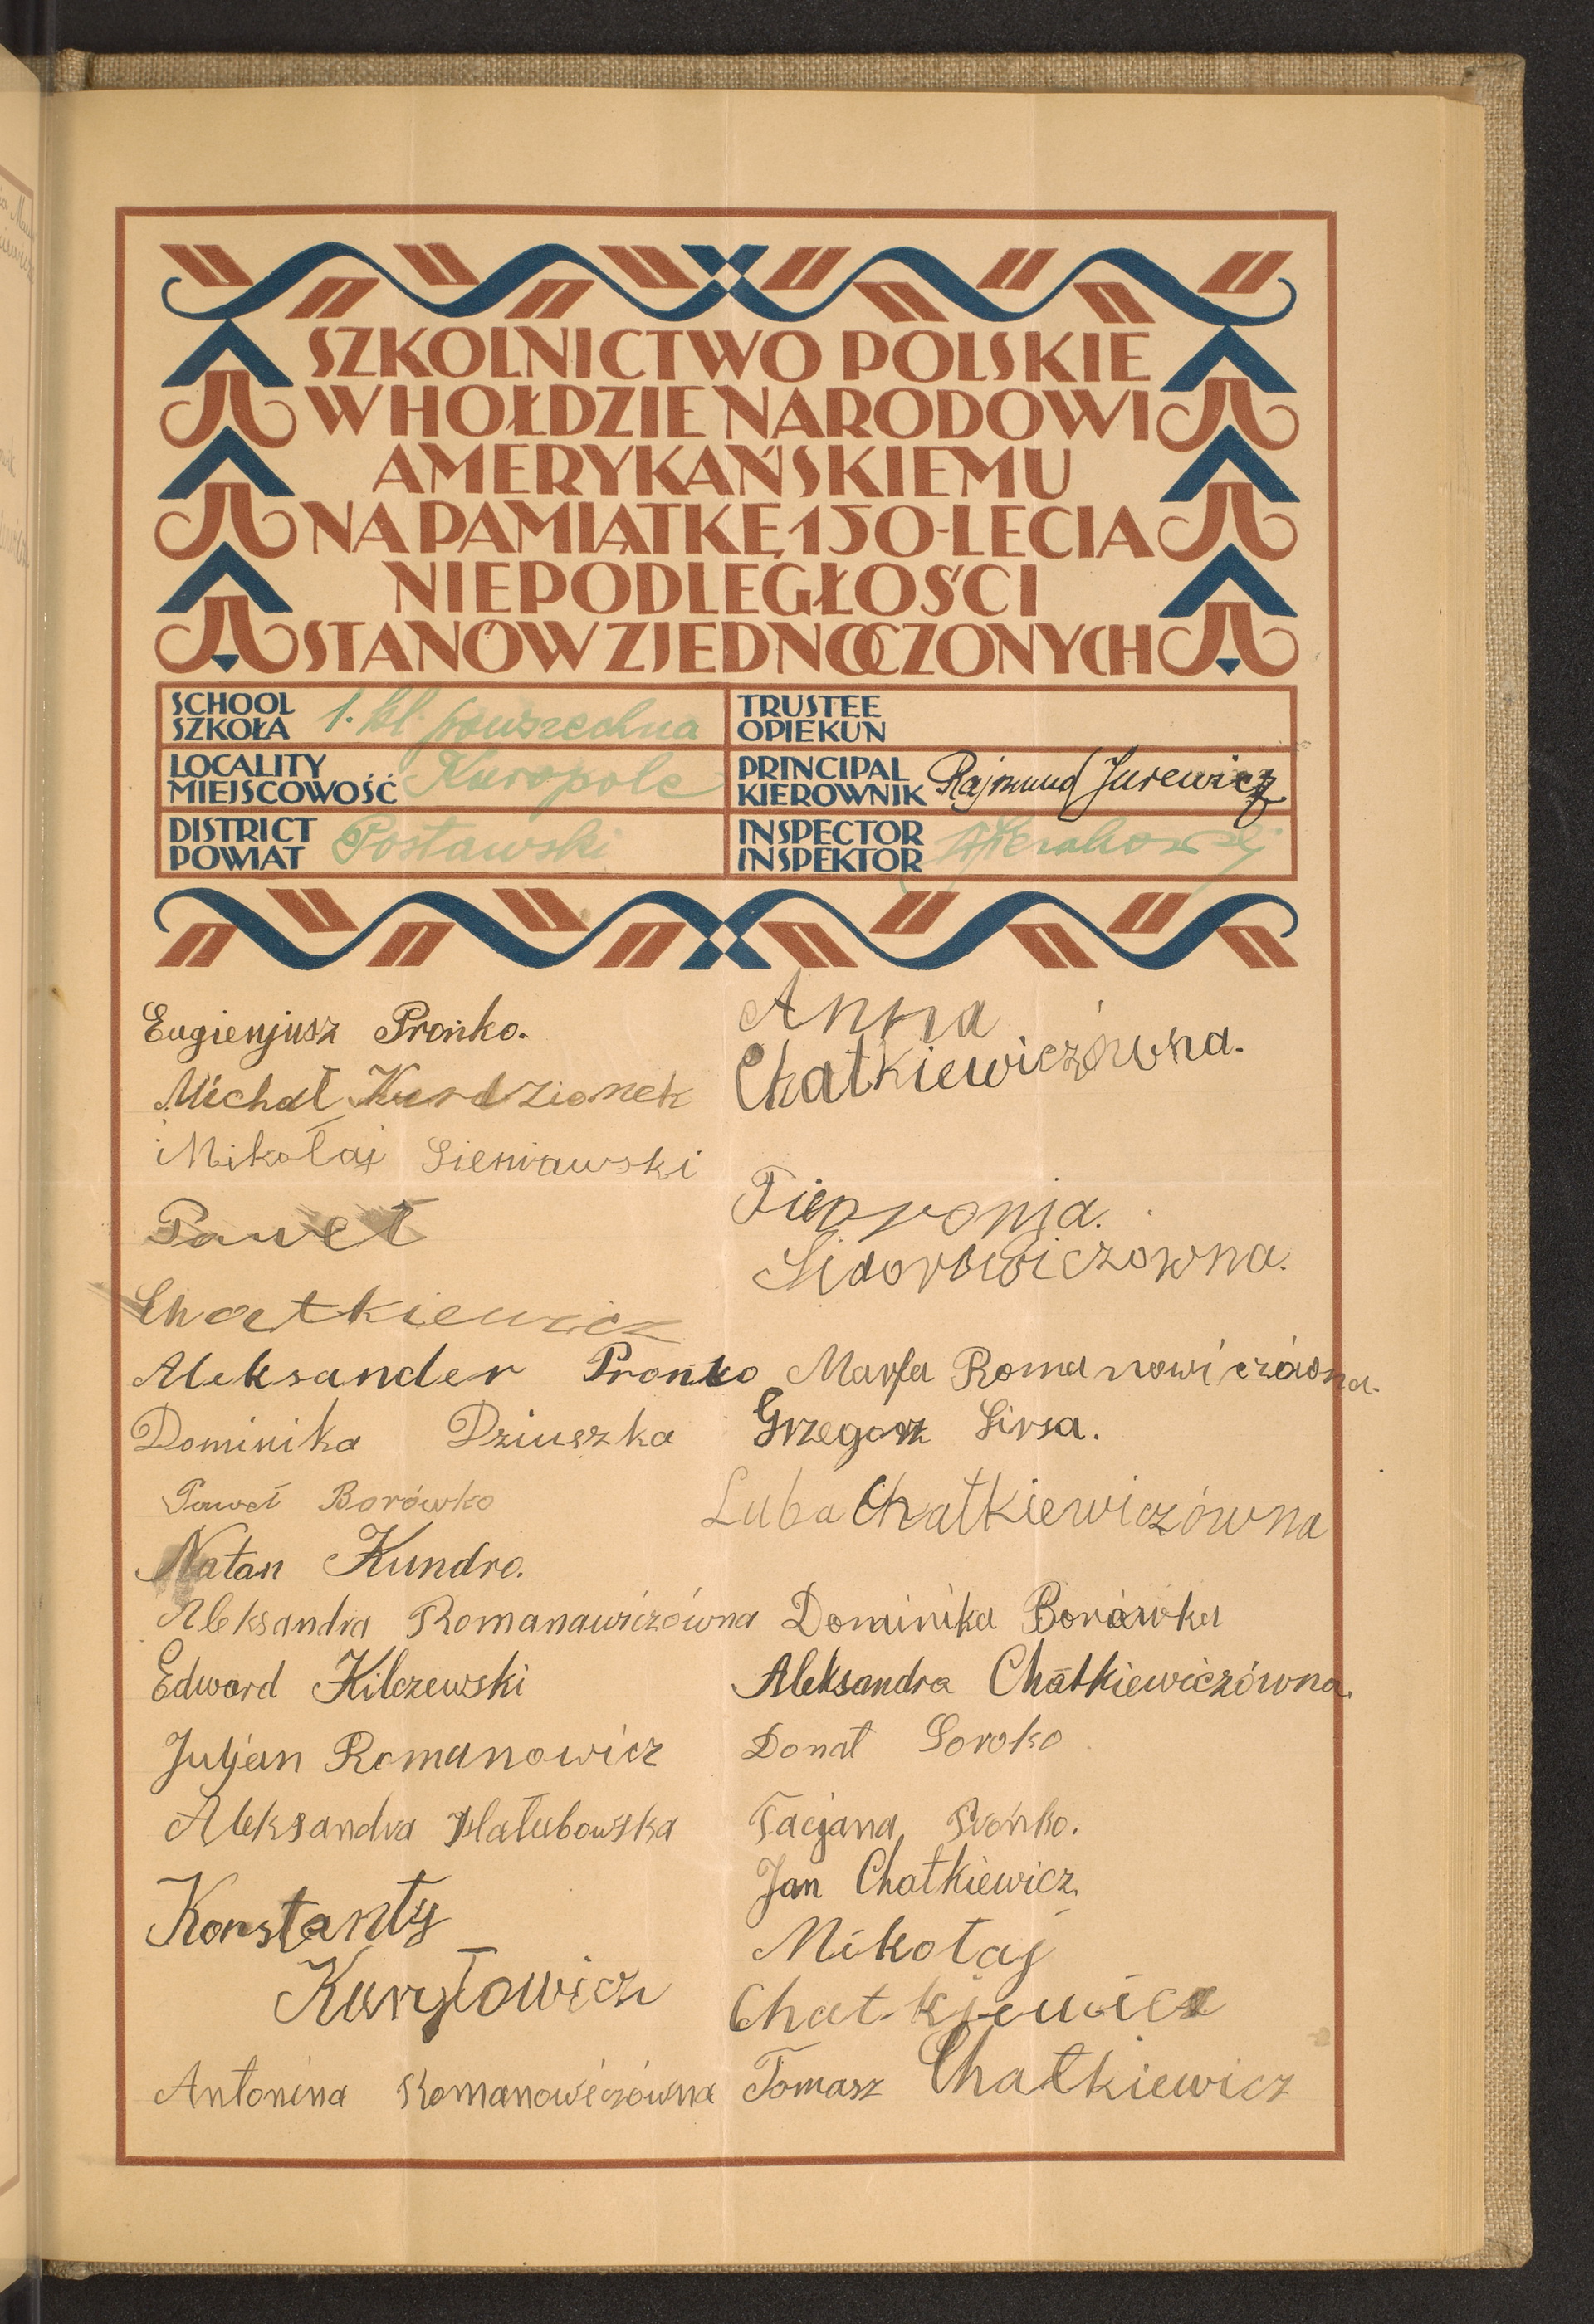 SZKOLNICTWO POLSKIE
W HOŁDZIE NARODOWI
AMERYKAŃSKIEMU
NA PAMIĄTKĘ 150-LECIA
NIEPODLEGŁOŚCI
STANÓW ZJEDNOCZONYCH
SCHOOL
SZKOŁA
1. kl. powszechna
TRUSTEE
OPIEKUN
LOCALITY
MIEJSCOWOŚĆ
Kuropole
PRINCIPAL
KIEROWNIK
Rajmund Jurewicz
DISTRICT
POWIAT
Postawski
INSPECTOR
INSPEKTOR
Eugienjusz Prońko.
Michał Kurdzionek
Mikołaj Sieniawski
Paweł
Chatkiewicz
Aleksander Pronko
Dominika Dziuszka
Paweł Borówko
Natan Kundro.
Aleksandra Romanawiczówna
Edward Kilczewski
Juljan Romanowicz
Aleksandra Hałubowska
Konstanty
Kuryłowicz
Antonina Romanowiczówna
Anna
Chatkiewiczówna.
Sidorowiczowna.
Marfa Romanowiczówna.
Grzegorz Sirsa.
Luba Chatkiewiczówna
Dominika Borówka
Aleksandra Chatkiewiczówna.
Donat Soroko
Tacjana Prońko.
Jan Chatkiewicz
Mikołaj
Chatkiewicz
Tomasz Chatkiewicz